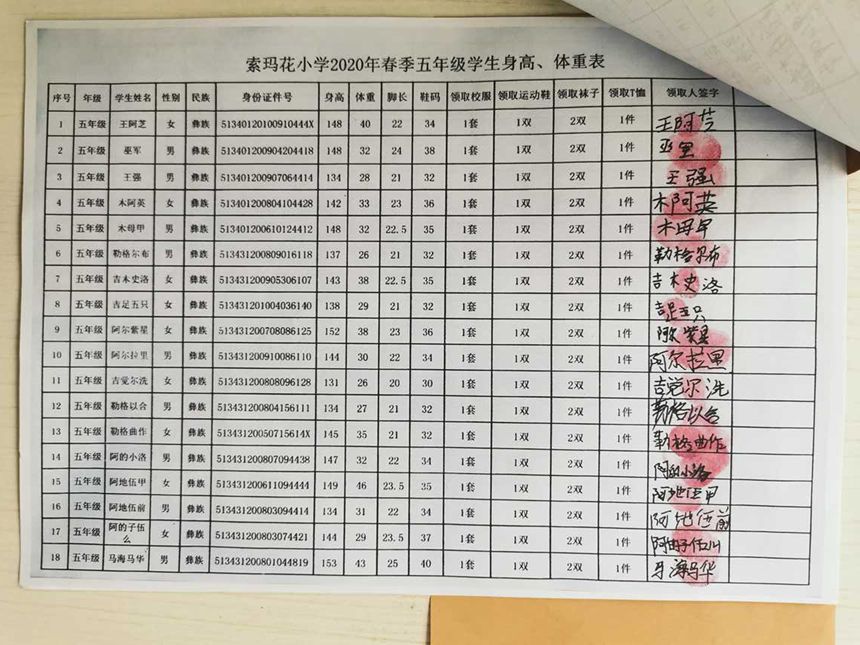 索玛花小学2020年春季五年级学生身高、体重表
序号 年级 学生姓名 性别 民族 身份证件号 身高 体重 脚长 鞋码 领取校服 领取运动鞋 领取袜子 领取T恤 领取人签字
1 五年级 王阿芝 女 彝族 51340120100910444X 148 40 22 34 1套 1双 2双 1件 王阿芝
2 五年级 巫军 男 彝族 513401200904204418 148 32 24 38 1套 1双 2双 1件
3 五年级 王强 男 彝族 513401200907064414 134 28 21 32 1套 1双 2双 1件 王强
4 五年级 木阿英 女 彝族 513401200804104428 142 33 23 36 1套 1双 2双 1件 木阿英
5 五年级 木母甲 男 彝族 513401200610124412 148 32 22.5 35 1套 1双 2双 1件 木母甲
6 五年级 勒格尔布 男 彝族 513431200809016118 137 26 21 32 1套 1双 2双 1件 勒格尔布
7 五年级 吉木史洛 女 彝族 513431200905306107 143 38 22.5 35 1套 1双 2双 1件 吉木史洛
8 五年级 吉足五只 女 彝族 513431201004036140 138 29 21 32 1套 1双 2双 1件 吉足五只
9 五年级 阿尔紫星 女 彝族 513431200708086125 152 38 23 36 1套 1双 2双 1件 阿尔紫星
10 五年级 阿尔拉里 男 彝族 513431200910086110 144 30 22 34 1套 1双 2双 1件 阿尔拉里
11 五年级 吉觉尔洗 女 彝族 513431200808096128 131 26 20 30 1套 1双 2双 1件 吉觉尔洗
12 五年级 勒格以合 男 彝族 513431200804156111 134 27 21 32 1套 1双 2双 1件 勒格以合
13 五年级 勒格曲作 女 彝族 51343120050715614X 145 35 21 32 1套 1双 2双 1件 勒格曲作
14 五年级 阿的小洛 男 彝族 513431200807094438 147 32 22 34 1套 1双 2双 1件 阿的小洛
15 五年级 阿地伍甲 女 彝族 513431200611094444 149 46 23.5 35 1套 1双 2双 1件 阿地伍甲
16 五年级 阿地伍前 男 彝族 513431200803094414 134 31 22 34 1套 1双 2双 1件 阿地伍前
17 五年级 阿的子伍么 女 彝族 513431200803074421 144 29 23.5 37 1套 1双 2双 1件
18 五年级 马海马华 男 彝族 513431200801044819 153 43 25 40 1套 1双 2双 1件 马海马华